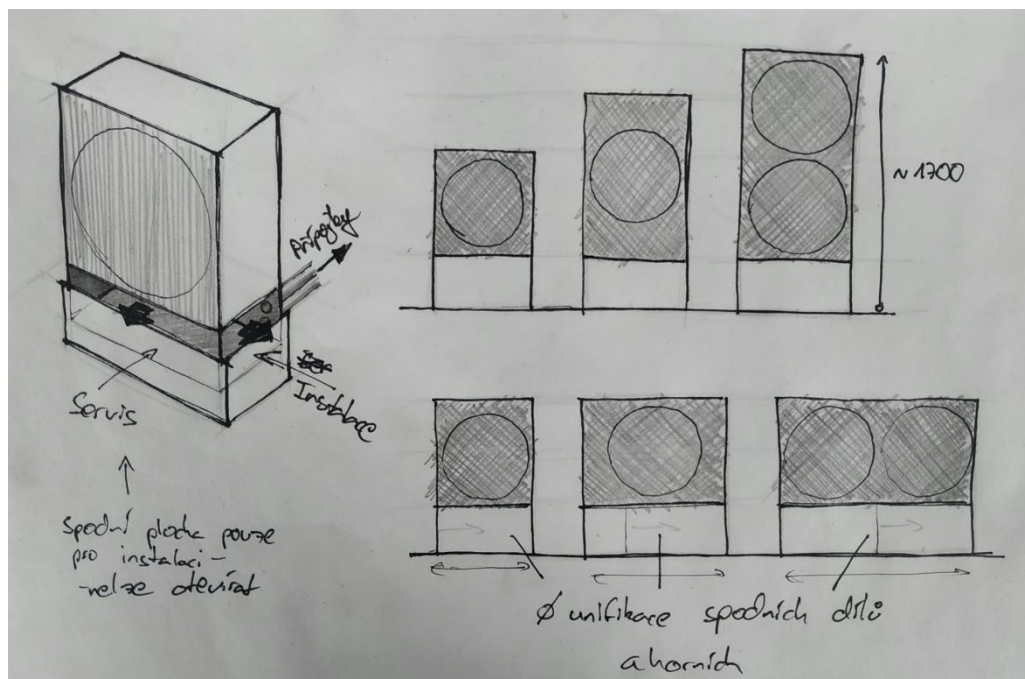 Přípojky
Servis
Instalace
Spodní plocha pouze
pro instalaci -
- nelze otevírat
~1700
Ø unifikace spodních dílů
a horních